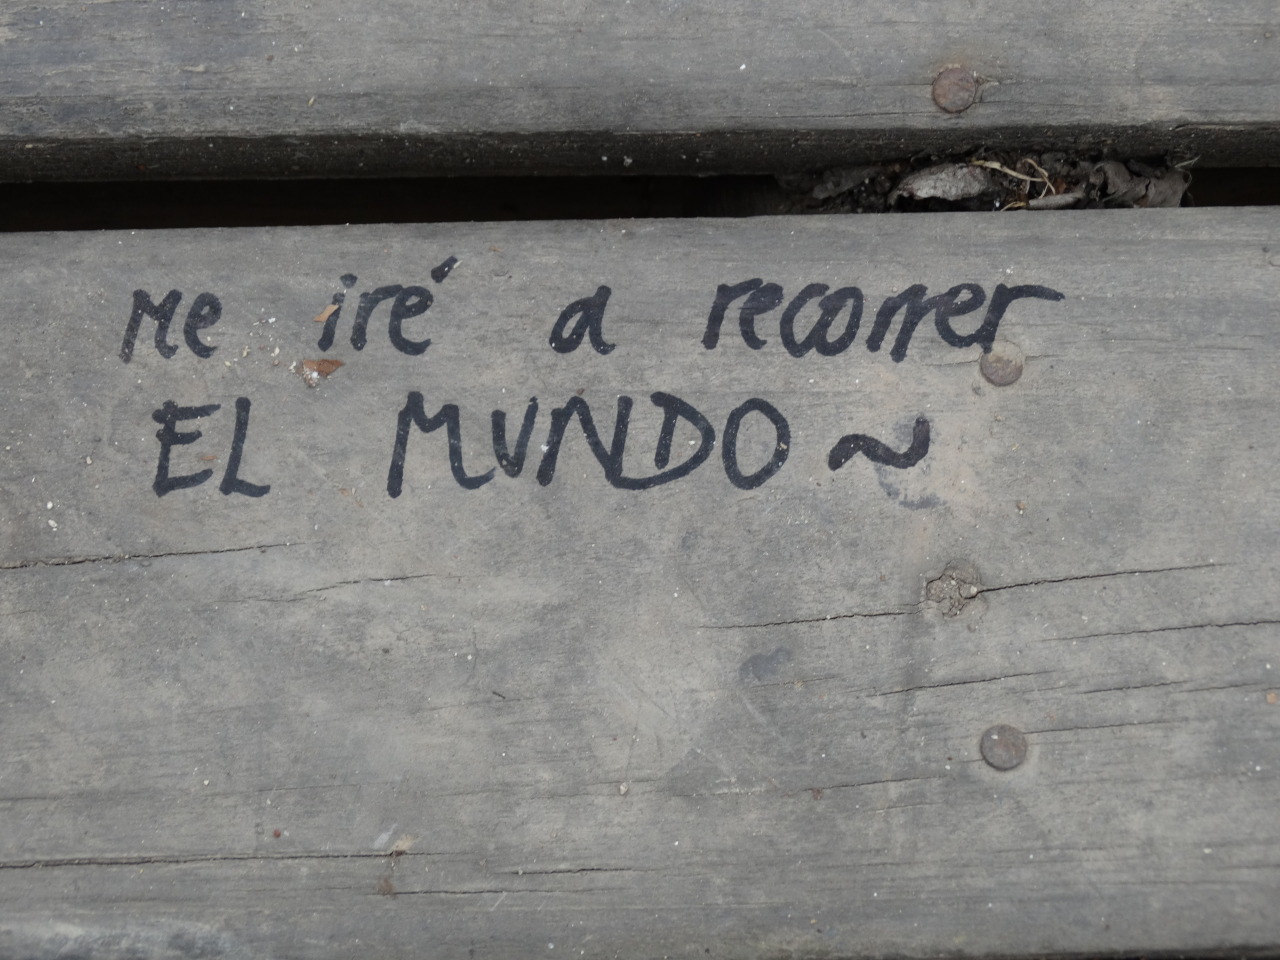 Me iré a recorrer
EL MUNDO ~